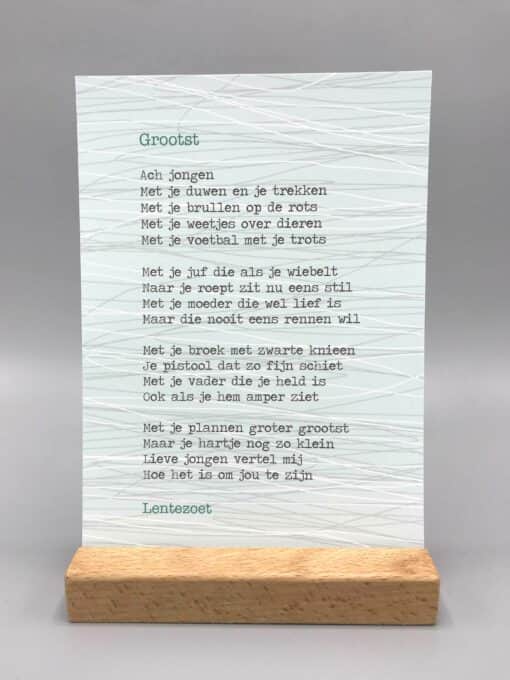 Grootst
Ach jongen
Met je duwen en je trekken
Met je brullen op de rots
Met je weetjes over dieren
Met je voetbal met je trots
Met je juf die als je wiebelt
Naar je roept zit nu eens stil
Met je moeder die wel lief is
Maar die nooit eens rennen wil
Met je broek met zwarte knieen
Je pistool dat zo fijn schiet
Met je vader die je held is
Ook als je hem amper ziet
Met je plannen groter grootst
Maar je hartje nog zo klein
Lieve jongen vertel mij
Hoe het is om jou te zijn
Lentezoet